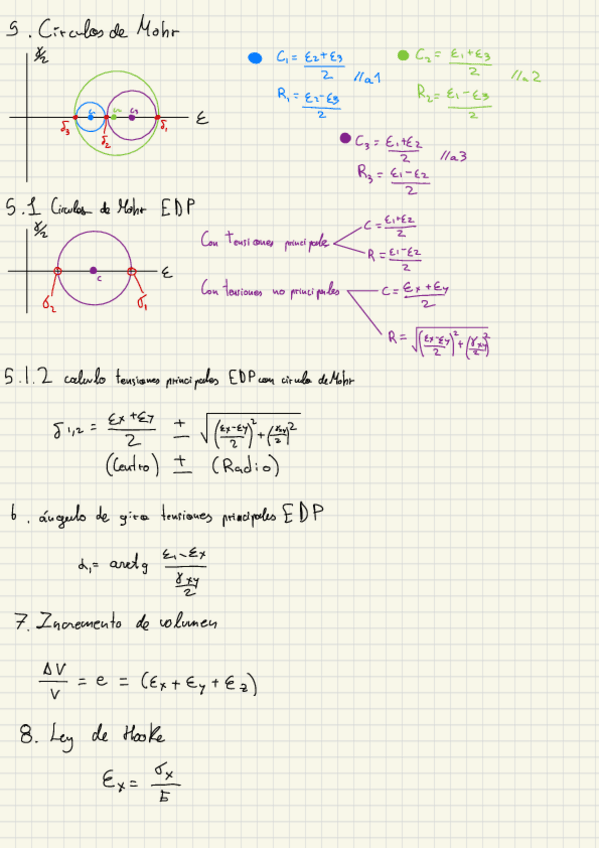 5. Circulos de Mohr
γ/2
C₁ = (ε₂+ε₃)/2 //a1
R₁ = (ε₂-ε₃)/2
C₂ = (ε₁+ε₃)/2 //a2
R₂ = (ε₁-ε₃)/2
C₃ = (ε₁+ε₂)/2 //a3
R₃ = (ε₁-ε₂)/2
C₁ C₂ C₃ ε
σ₃ σ₂ σ₁
5.1 Circulos de Mohr EDP
γ/2
Con tensiones principale
C = (ε₁+ε₂)/2
R = (ε₁-ε₂)/2
C ε
σ₂ σ₁
Con tensiones no principales
C = (εx + εy)/2
R = √(((εx-εy)/2)² + (γxy/2)²)
5.1.2 calculo tensiones principales EDP con circulo de Mohr
σ₁,₂ = (εx+εy)/2 ± √(((εx-εy)/2)² + (γxy/2)²)
(Centro) ± (Radio)
6. ángulo de giro tensiones principales EDP
α₁ = arctg (ε₁-εx)/(γxy/2)
7. Incremento de volumen
ΔV/V = e = (εx + εy + εz)
8. Ley de Hooke
εx = σx/E